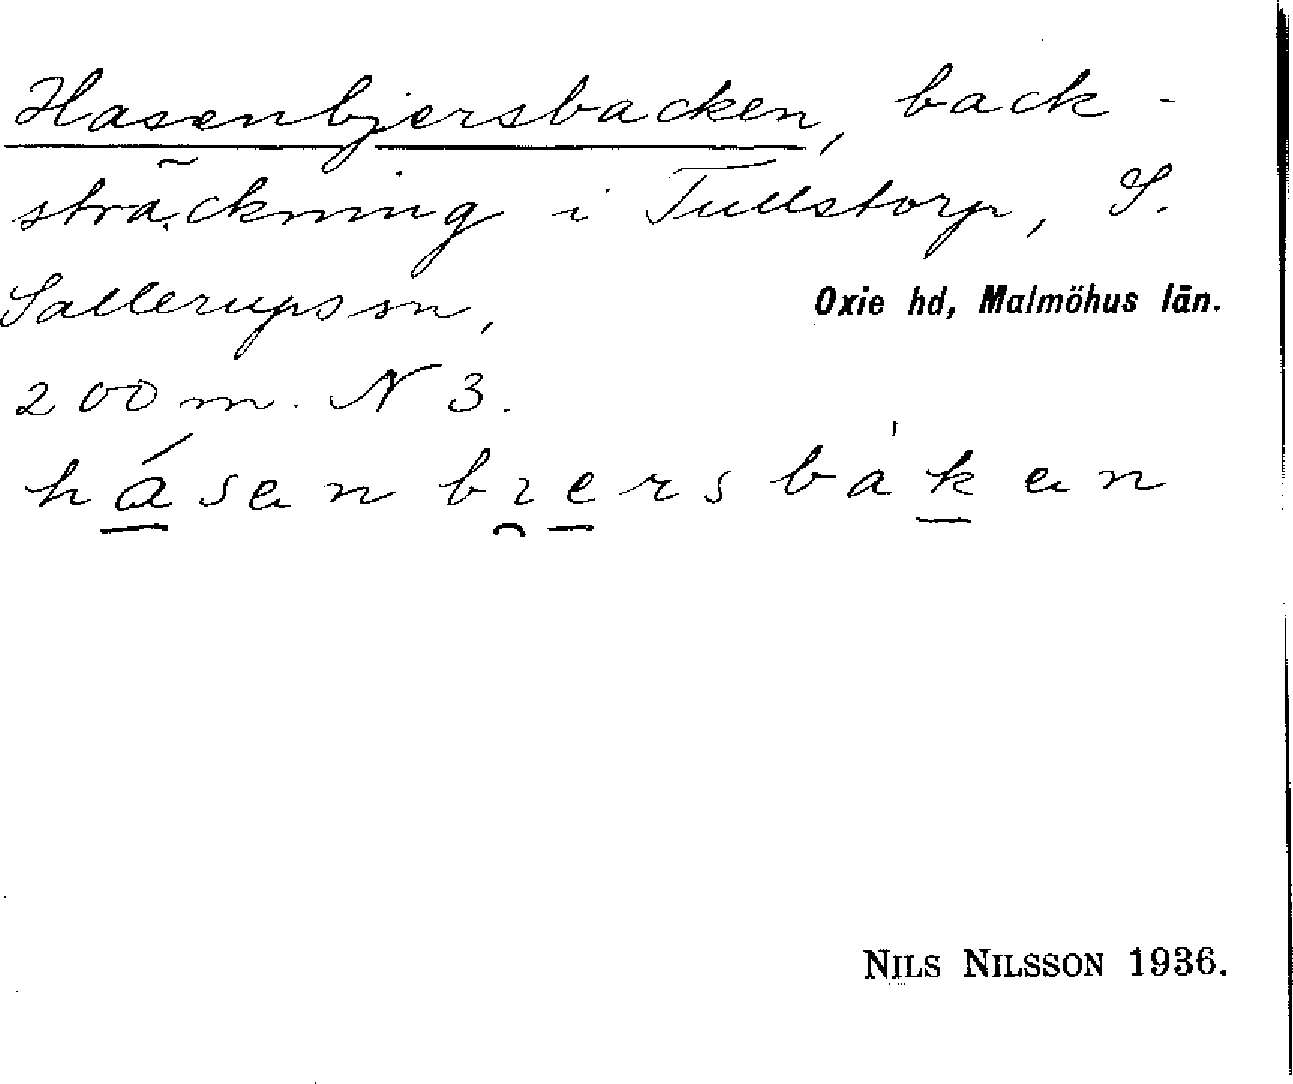 Hasenbjersbacken, back-
sträckning i Tullstorp, S.
Sallerups sn,
Oxie hd, Malmöhus län.
200 m. N 3.
hásen bɪersbàken
NILS NILSSON 1936.